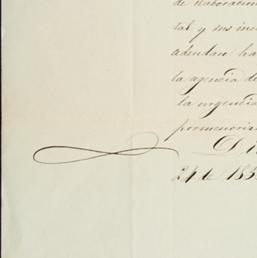 de elaboracion
tal y sus in
adeudan ha
la agencia de
la urgencia
pormenoriz
D
24 de 185